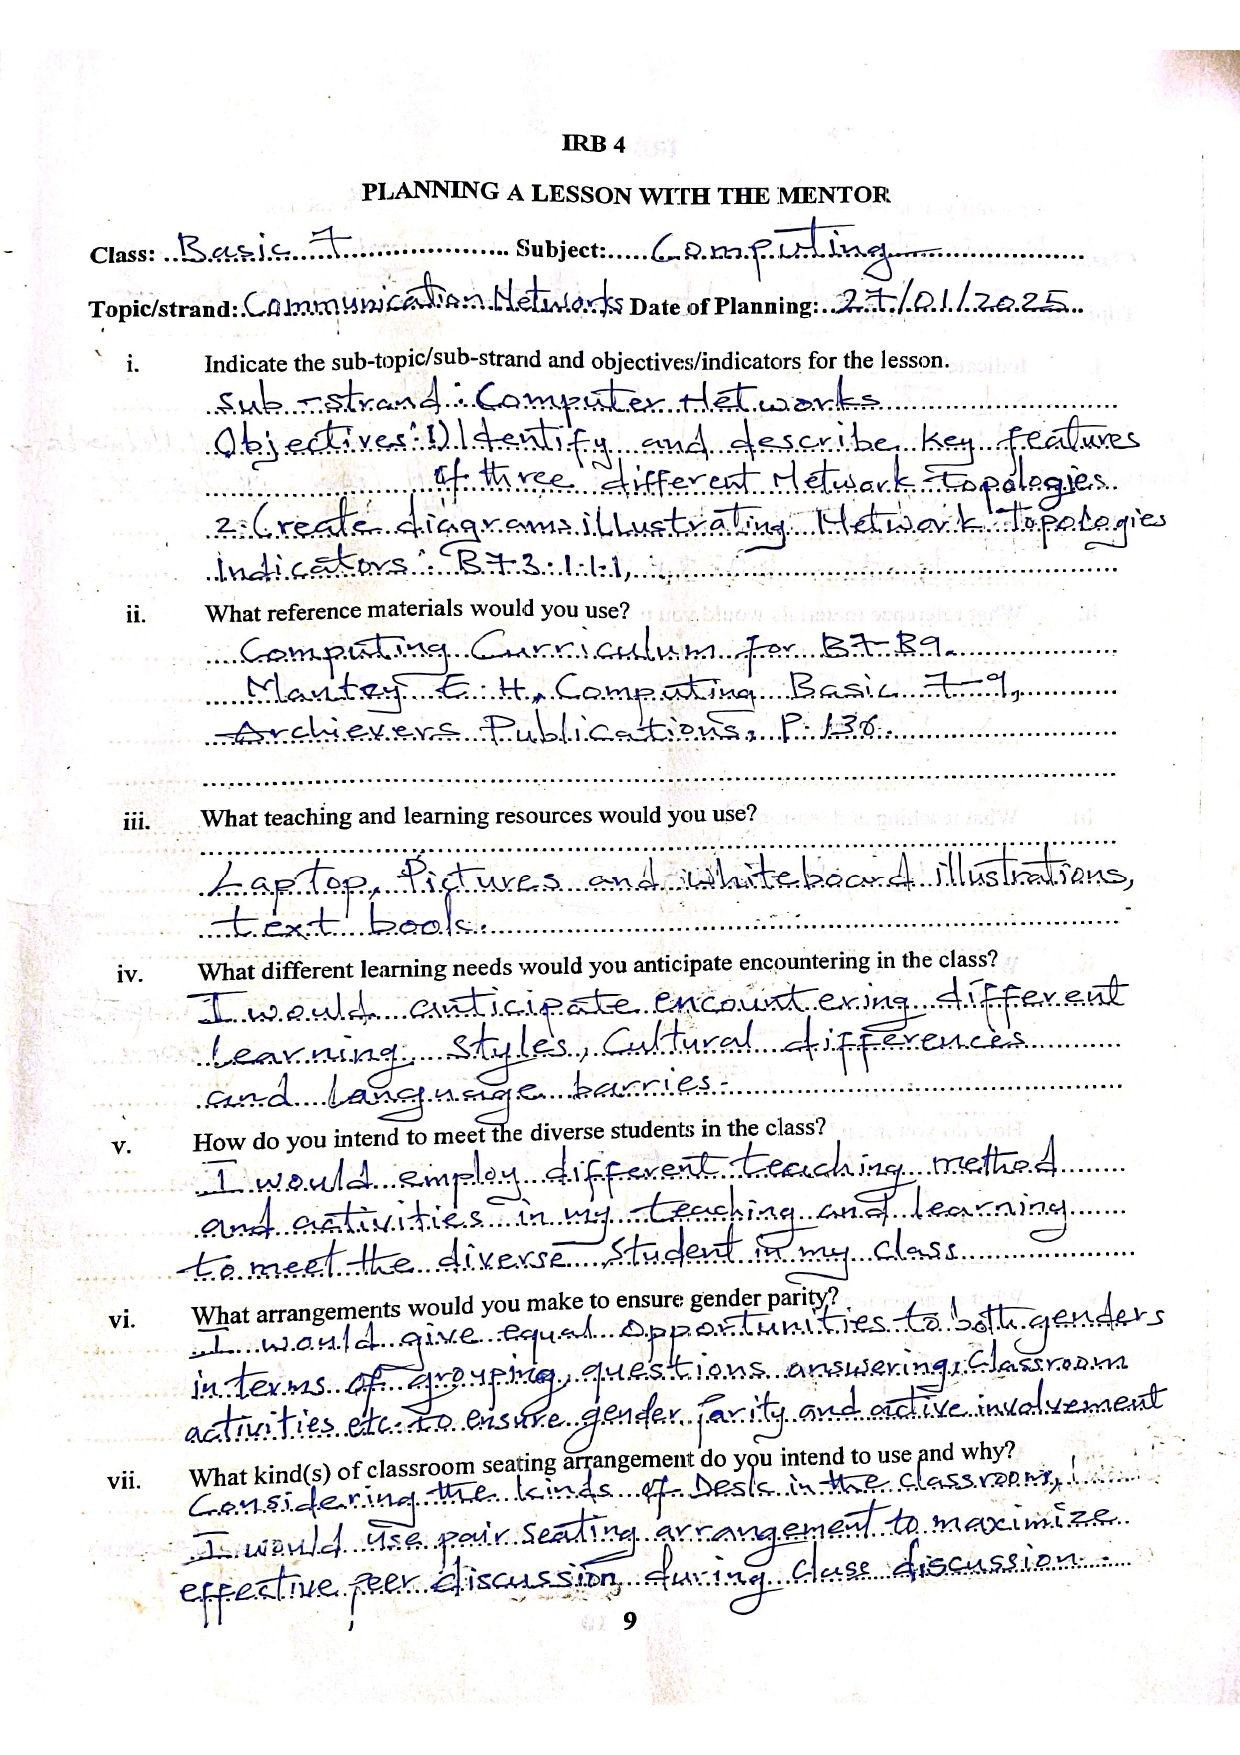 IRB 4
PLANNING A LESSON WITH THE MENTOR
Class: Basic 7 Subject: Computing
Topic/strand: Communication Networks Date of Planning: 27/01/2025
i. Indicate the sub-topic/sub-strand and objectives/indicators for the lesson.
Sub-strand: Computer Networks
Objectives: 1) Identify and describe key features
of three different Network topologies.
2. Create diagrams illustrating Network topologies
Indicators: B7 3.1.1.1,
ii. What reference materials would you use?
Computing Curriculum for B7-B9.
Mantey E. H, Computing Basic 7-9,
Archievers Publications, P. 136.
iii. What teaching and learning resources would you use?
Laptop, Pictures and whiteboard illustrations,
text book.
iv. What different learning needs would you anticipate encountering in the class?
I would anticipate encountering different
learning styles, Cultural differences
and language barries.
v. How do you intend to meet the diverse students in the class?
I would employ different teaching method
and activities in my teaching and learning
to meet the diverse student in my class
vi. What arrangements would you make to ensure gender parity?
I would give equal opportunities to both genders
in terms of grouping, questions answering, Classroom
activities etc. to ensure gender parity and active involvement
vii. What kind(s) of classroom seating arrangement do you intend to use and why?
Considering the kinds of Desk in the classroom,
I would use pair seating arrangement to maximize
effective peer discussion during class discussion.
9